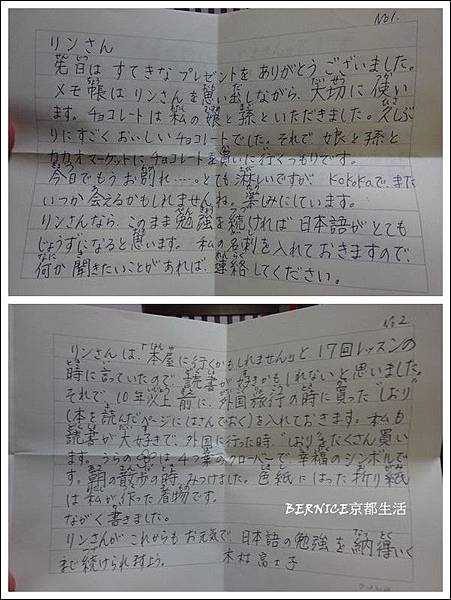 No1.
リンさん
先日は すてきな プレゼントを ありがとう ございました。
メモ帳は リンさんを 思い出しながら、大切に 使い
ます。チョコレートは 私の 娘と 孫と いただきました。久しぶ
りに すごく おいしい チョコレートでした。それで 娘と 孫と
マーケットに チョコレートを 買いに 行く つもりです。
今日で もう お別れ……。とても 淋しいですが kokoka で、また
いつか 会えるかも しれませんね。楽しみに しています。
リンさんなら、このまま 勉強を 続ければ 日本語が とても
じょうずに なると 思います。 私の 名刺を 入れて おきますので、
何か 聞きたいことが あれば、連絡して ください。
No2
リンさんは、"本屋に 行くかも しれません" と 17回 レッスンの
時に 言っていたので、読書が 好きかも しれないと 思いました。
それで、10年以上 前に、外国旅行の 時に 買った "しおり"
(本を 読んだ ページに はさんで おく)を 入れて おきます。私も
読書が 大好きで、外国に 行った時 "しおり" を たくさん 買い
ます。うらの は 4つ葉の クローバーで 幸福の シンボルで
す。朝の 散歩の 時、みつけました。色紙に はった 折り紙
は 私が 作った 着物です。
ながく 書きました。
リンさんが これからも お元気で、日本語の 勉強を 納得いく
まで 続けられますよう。 木村
BERNICE京都生活